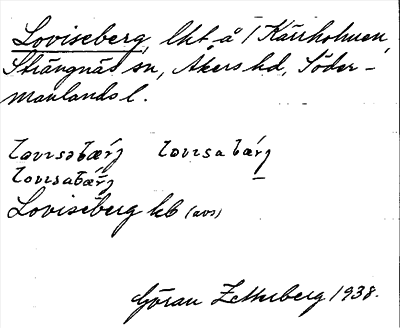 Loviseberg, lht å 1 Kärrholmen,
Strängnäs sn, Åkers hd, Söder-
manlands l.
lovɩsəbærj lovɩsabærj
lovɩsabærj
Loviseberg kb (avs)
Göran Zetterberg 1938.